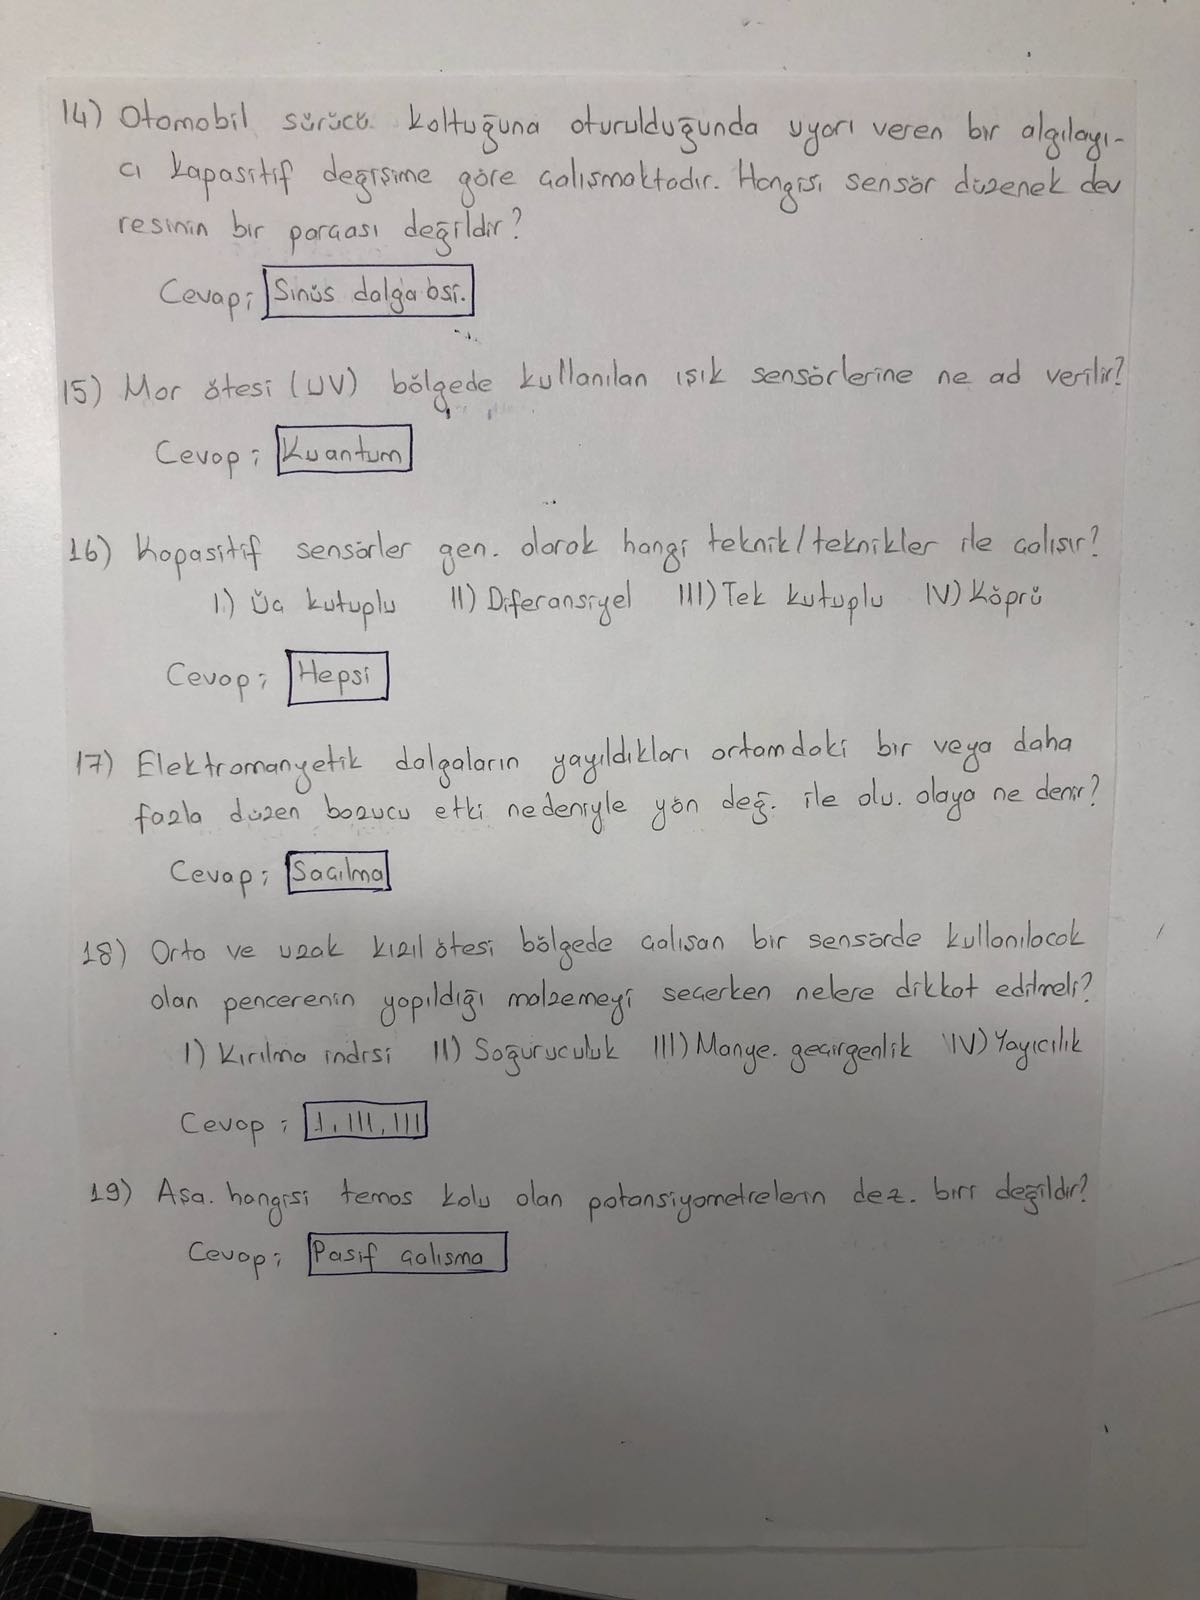 14) Otomobil sürücü koltuğuna oturulduğunda uyarı veren bir algılayı-
cı kapasitif değişime göre çalışmaktadır. Hangisi sensör düzenek dev
resinin bir parçası değildir?
Cevap; Sinüs dalga osi.
15) Mor ötesi (UV) bölgede kullanılan ışık sensörlerine ne ad verilir?
Cevap; Kuantum
16) Kapasitif sensörler gen. olarak hangi teknik/teknikler ile çalışır?
I) Üç kutuplu II) Diferansiyel III) Tek kutuplu IV) Köprü
Cevap; Hepsi
17) Elektromanyetik dalgaların yayıldıkları ortamdaki bir veya daha
fazla düzen bozucu etki nedeniyle yön değ. ile olu. olaya ne denir?
Cevap; Saçılma
18) Orta ve uzak kızıl ötesi bölgede çalışan bir sensörde kullanılacak
olan pencerenin yapıldığı malzemeyi seçerken nelere dikkat edilmeli?
I) Kırılma indisi II) Soğuruculuk III) Manye. geçirgenlik IV) Yayıcılık
Cevap; I, III, III
19) Aşa. hangisi temas kolu olan potansiyometrelerin dez. biri değildir?
Cevap; Pasif çalışma